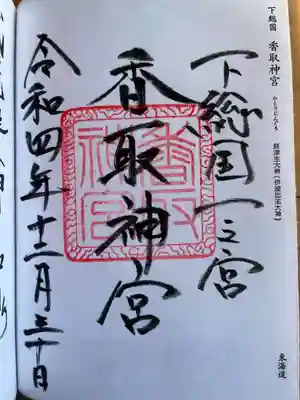 下総国 香取神宮
かとりじんぐう
経津主大神（伊波比主大神）
東海道
下総国一之宮
香取神宮
香取神宮
令和四年十二月三十日